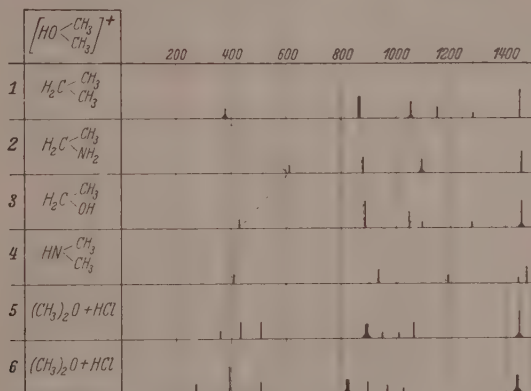 [HO<CH₃ CH₃]⁺
200 400 600 800 1000 1200 1400
1 H₂C<CH₃ CH₃
2 H₂C<CH₃ NH₂
3 H₂C<CH₃ OH
4 HN<CH₃ CH₃
5 (CH₃)₂O + HCl
6 (CH₃)₂O + HCl